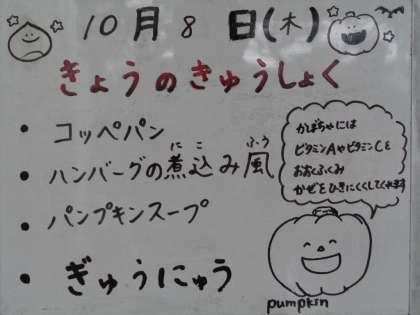 10月8日(木)
きょうのきゅうしょく
・コッペパン
・ハンバーグの煮込み風
にこ ふう
・パンプキンスープ
・ぎゅうにゅう
かぼちゃには
ビタミンAやビタミンCを
おおくふくみ
かぜをひきにくくしてくれます
pumpkin